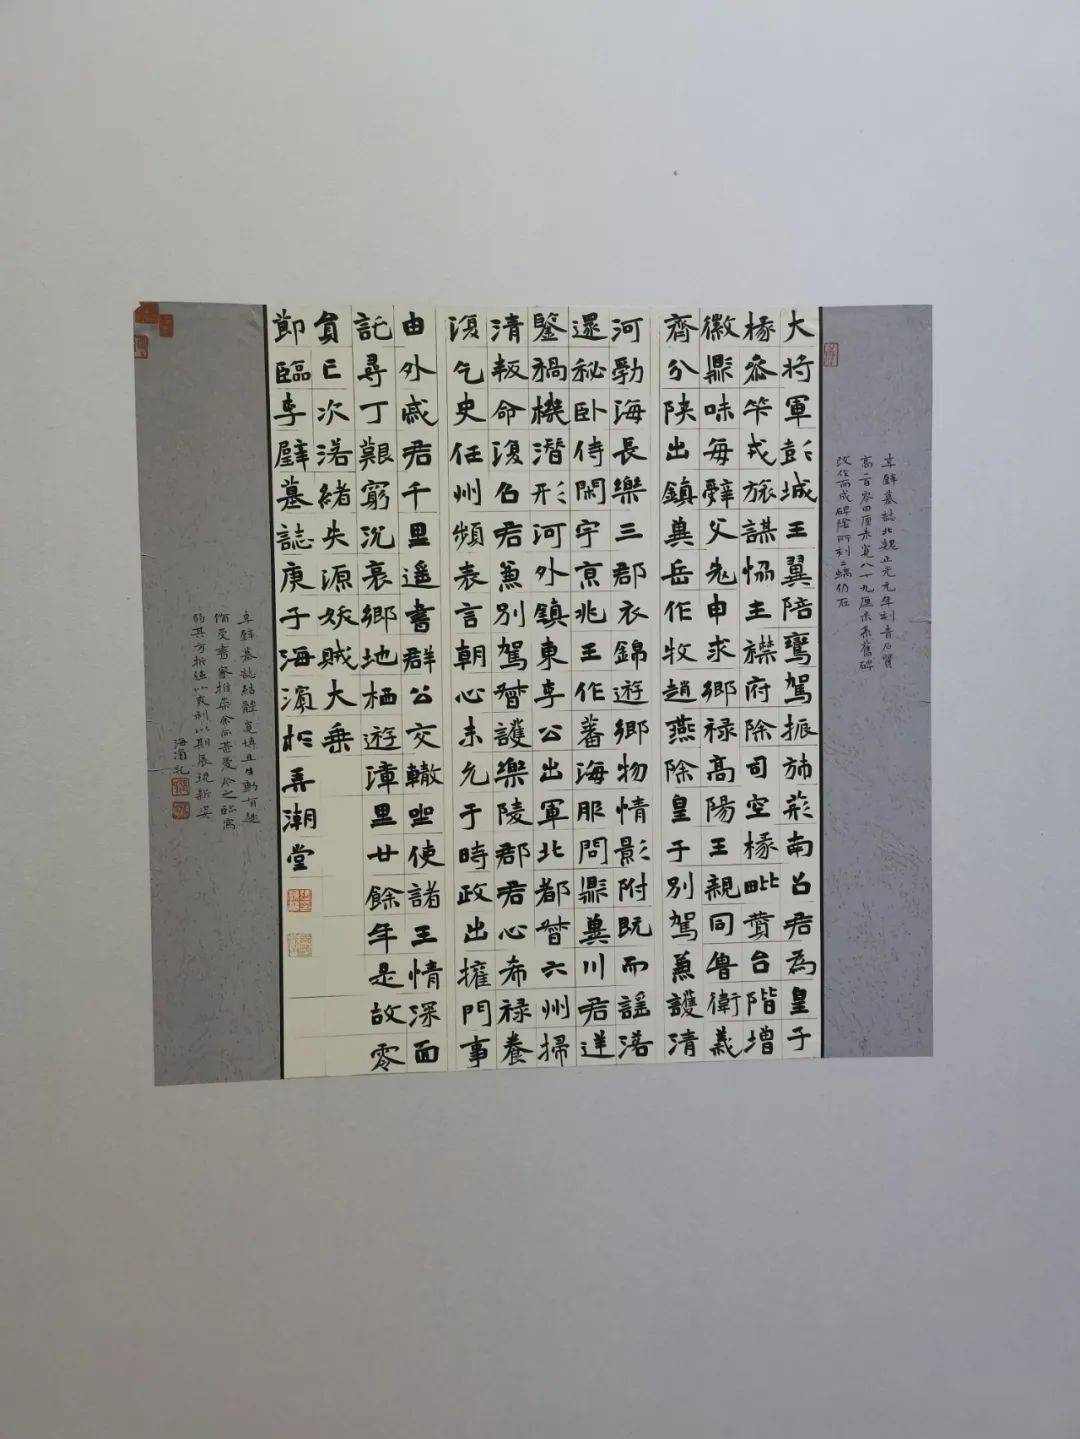 李璧墓誌北魏正光元年刻青石質
高二百零四厘米寬八十九厘米系舊碑
改作而成碑陰所刻二螭仍在
大将軍彭城王翼陪鸞駕振斾荊南召君為皇子
椽叅竿戎旅謀協主襟府除司空椽毗賛台階增
徽鼎味每辤父老申求鄉祿高陽王親同魯衛義
齊分陝出鎮冀岳作牧趙燕除皇子別駕兼護清
河勃海長樂三郡衣錦遊鄉物情影附既而謡落
還秘卧侍閑宇京兆王作蕃海服問鼎冀川君逆
鑒禍機潛形河外鎮東李公出軍北都督六州掃
清叛命復召君兼別駕督護樂陵郡君心希祿養
復乞史任州頻表言朝心未允于時政出擁門事
由外戚君千里遥書群公交轍坐使諸王情深面
託尋丁艱窮沉衰鄉地栖遊漳里廿餘年是故零
貟已次落緒失源妖賊大乗
節臨李璧墓誌庚子海濱於弄潮堂
李璧墓誌結體寬博且生動有趣
備受書家推崇余亦甚愛今之臨寫
方折 以爽利以期展現新姿
海濱記